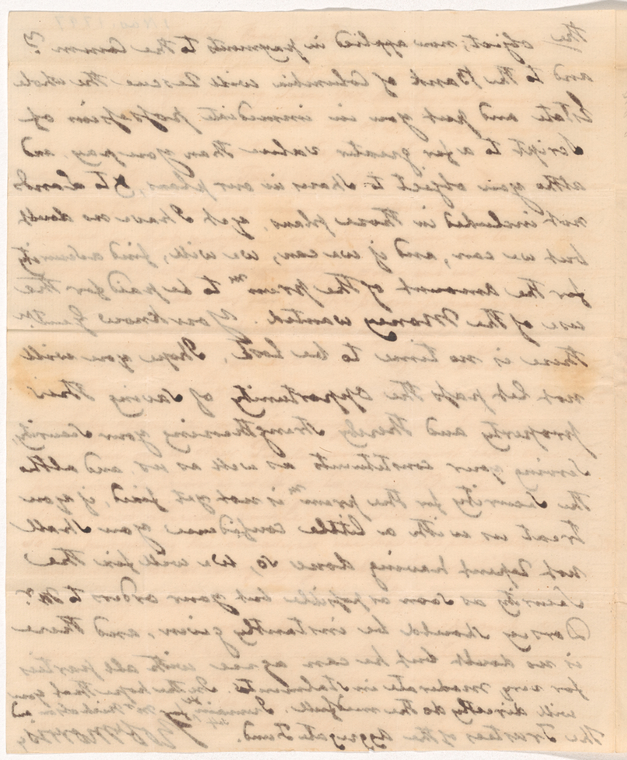 the object, now applied in payment to the Comm.rs
and to the Bank of Columbia will rescue the whole
Estate and put you in immediate possession of
Script to a far greater value than you pay, and
altho your object to share in our plans, & to Lands
not included in those plans, yet I have no doubt
but we can, and if we can, we will, find a Security
for the amount of the prem.m to be paid for the
use of the Money wanted. You know Gent.n
there is no time to be lost, I hope you will
not let pass the Opportunity of Saving this
property and thereby Strengthening your Security,
Serving your constituents as well as us and altho
the Security for the prem.m is not yet fixed, if you
treat us with a little confidence you Shall
not repent having done so, we will fix the
Security as soon as possible but your orders to Mr.
Dorsey should be instantly given, and there
is no doubt but he can agree with all parties
for very moderate instalments. In the hope that you
will directly do the needfull. I remain for Mr. Nicholson and
The Trustees of the Aggregate Fund. Rob Morris,
1797